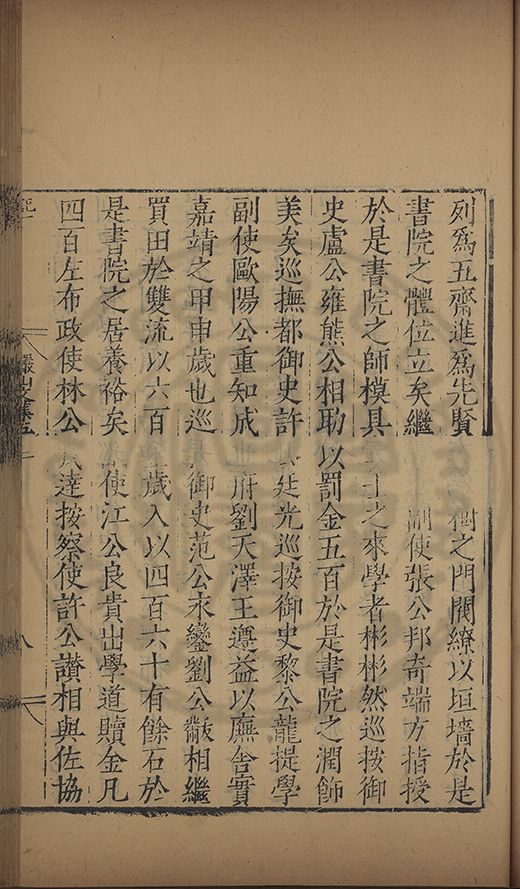 列爲五齋進爲先賢樹之門閥繚以垣墻於是
書院之體位立矣繼副使張公邦奇端方指授
於是書院之師模具士之來學者彬彬然巡按御
史盧公雍熊公相助以罰金五百於是書院之潤飾
美矣巡撫都御史許公廷光巡按御史黎公龍提學
副使歐陽公重知成府劉天澤王遵益以廡舍實
嘉靖之甲申歲也巡御史范公永鑾劉公黻相繼
買田於雙流以六百歲入以四百六十有餘石於
是書院之居養裕矣使江公良貴出學道贖金凡
四百左布政使林公茂達按察使許公讚相與佐協
記
儼山文集五
八